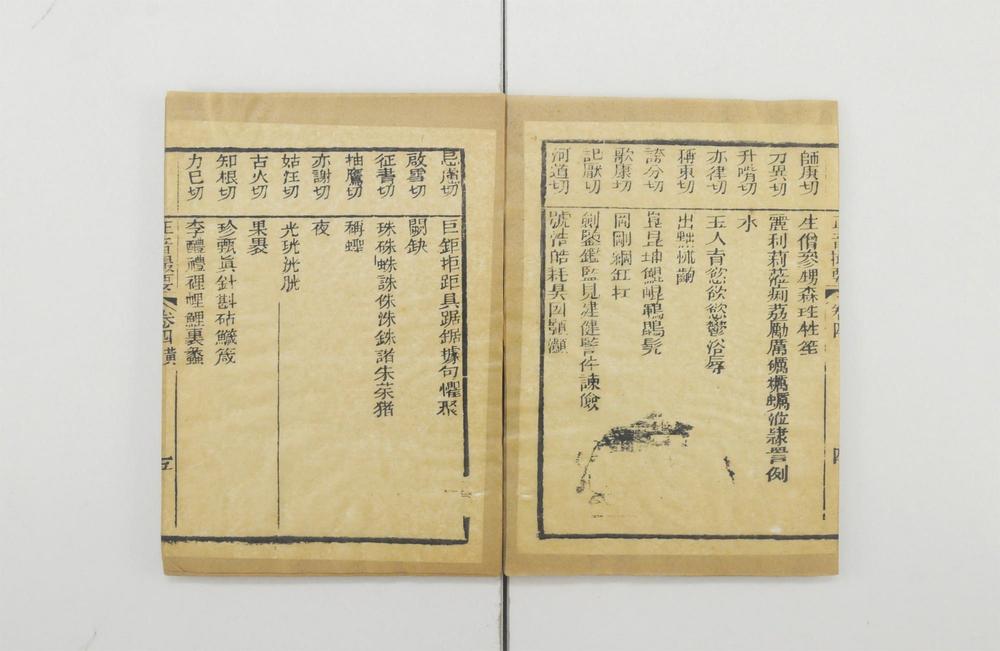 師庚切 生僧參甥森珄牲笙
力異切 麗利莉蒞痢荔勵厲礪櫔蠣涖隸詈例
升嘴切 水
亦律切 玉人育慾欲慾鬱浴辱
稱束切 出黜怵齣
誇分切 崑昆坤鯤崐鵾鶤髡
歌康切 岡剛綱缸杠
記厭切 劍鑒鑑監見建健監件諫儉
河道切 號浩皓耗昊因顥灝
忌慮切 巨鉅拒距具踞鋸據句懼聚
啟雪切 闕缺
征書切 珠硃蛛誅侏洙銖諸朱茱猪
抽鷹切 稱蟶
亦謝切 夜
姑汪切 光珖洸胱
古火切 果裹
知根切 珍甄眞針斟砧鱵箴
力巳切 李醴禮裡娌鯉裏蠡
卷四 橫 五